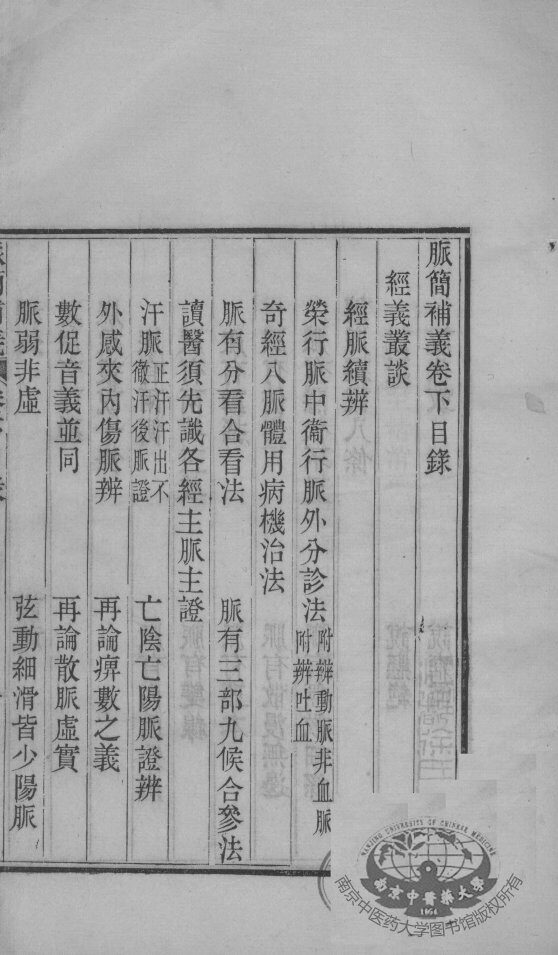 脈簡補義卷下目錄
經義叢談
經脈續辨
榮行脈中衞行脈外分診法 附辨動脈非血脈 附辨吐血
奇經八脈體用病機治法
脈有分看合看法 脈有三部九候合參法
讀醫須先識各經主脈主證
汗脈 正汗汗出不徹汗後脈證 亡陰亡陽脈證辨
外感夾內傷脈辨 再論痹數之義
數促音義並同 再論散脈虛實
脈弱非虛 弦動細滑皆少陽脈
NANJING UNIVERSITY OF CHINESE MEDICINE
南京中醫藥大學
1954
南京中医药大学图书馆版权所有